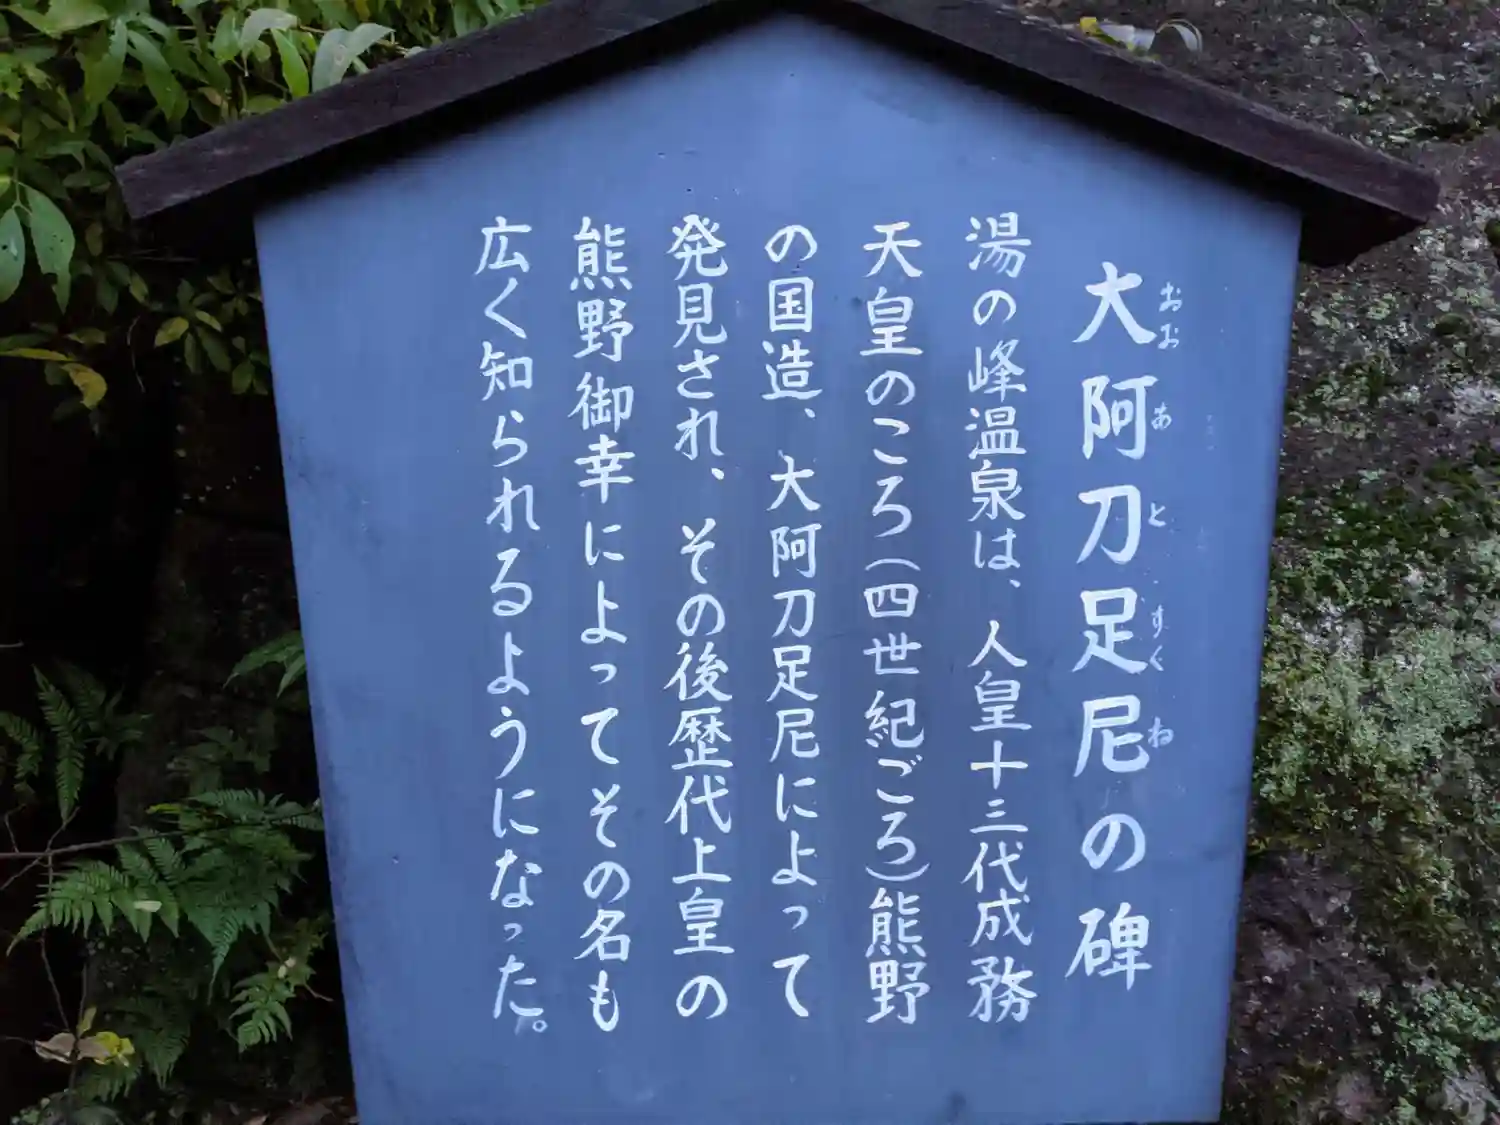 大阿刀足尼の碑
おおあとすくね
湯の峰温泉は、人皇十三代成務
天皇のころ(四世紀ごろ)熊野
の国造、大阿刀足尼によって
発見され、その後歴代上皇の
熊野御幸によってその名も
広く知られるようになった。